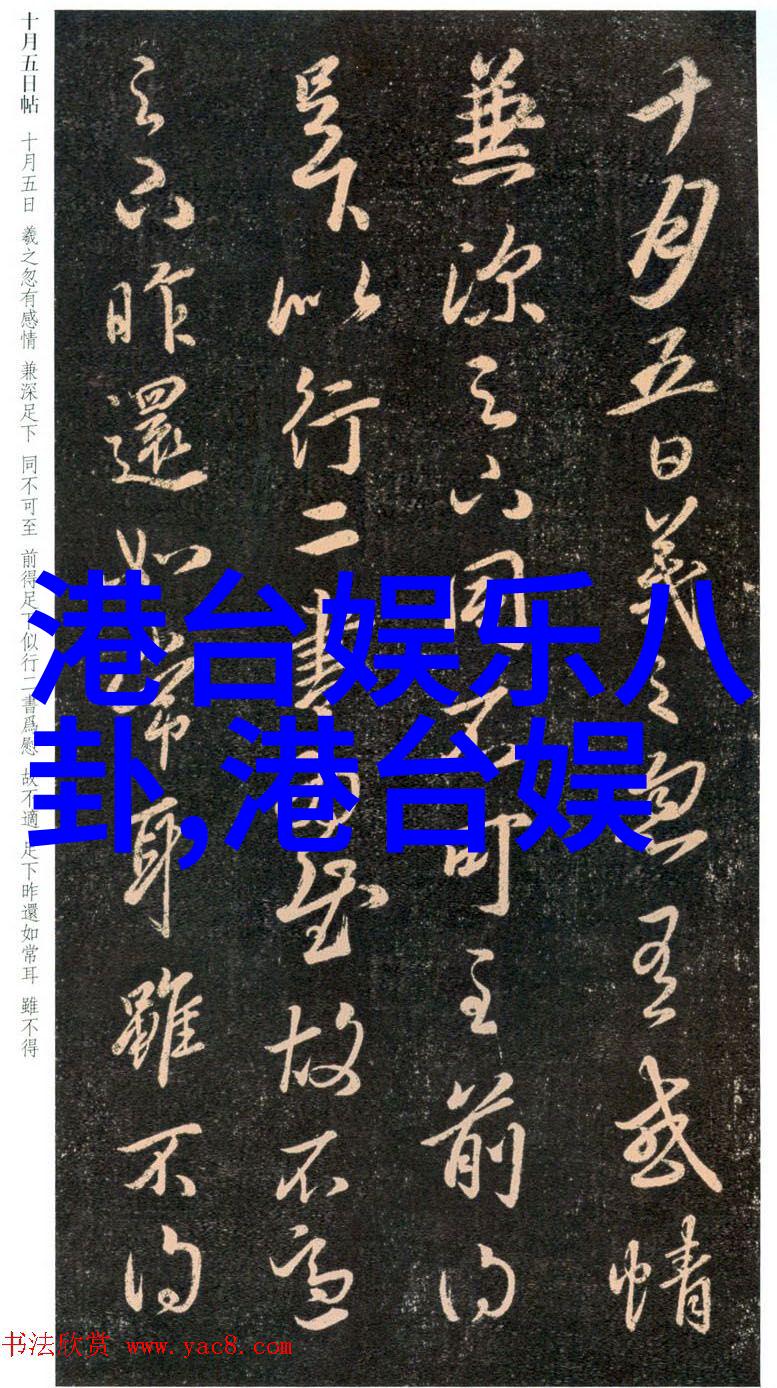 十月五日羲之忽有感情
兼深足下同不可至前得
足下似行二書爲慰故不適
足下昨還如常耳雖不得
十月五日帖 十月五日 羲之忽有感情 兼深足下 同不可至 前得足下似行二書爲慰 故不適 足下昨還如常耳 雖不得
港台娱乐八
卦,港台娱
书法欣赏 www.yac8.com